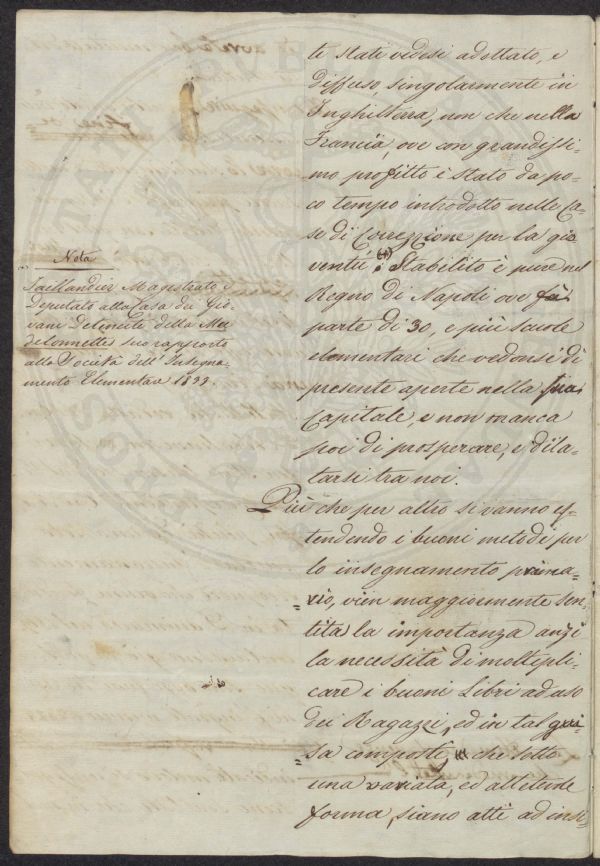 te Stati vedesi adottato, e
diffuso, singolarmente in
Inghilterra, non che nella
Francia, ove con grandissi-
mo profitto è stato da po-
co tempo introdotto nelle Ca-
se di Correzzione per la gio-
ventù (*) Stabilito è pure nel
Regno di Napoli ove
parte di 30, e più scuole
elementari che vedonsi di
presente aperte nella sua
Capitale, e non manca
poi di prosperare, e dila-
tarsi tra noi.
Più che per altro si vanno es-
tendendo i buoni metodi per
lo insegnamento prima-
rio, vien maggiormente sen-
tita la importanza anzi
la necessità di moltipli-
care i buoni Libri ad uso
dei Ragazzi, ed in tal gui-
sa composti, che sotto
una variata, ed allettante
forma, siano atti ad insi-
Nota
Taillandier Magistrato e
Deputato alla Casa dei Gio-
vani Delinuti della Ma-
delonnettes suo rapporto
alla Società dell' Insegna-
mento Elementare